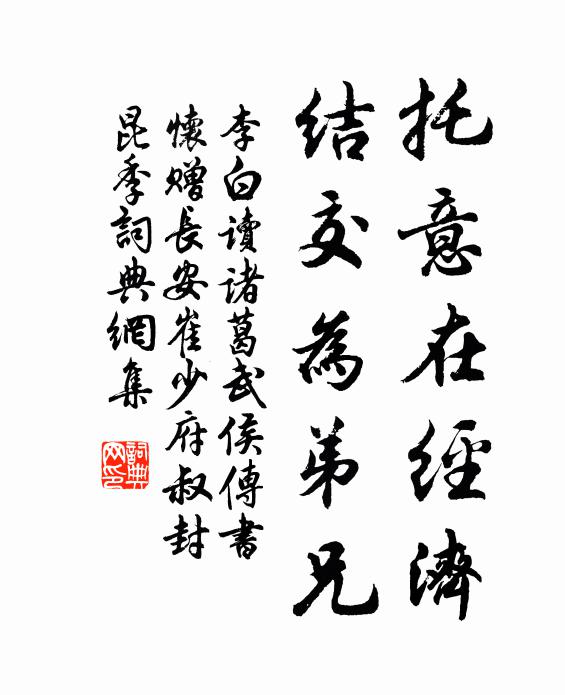 托意在經濟
結交為弟兄
李白讀諸葛武侯傳書
懷贈長安崔少府叔封
昆季詞典網集
詞典網印